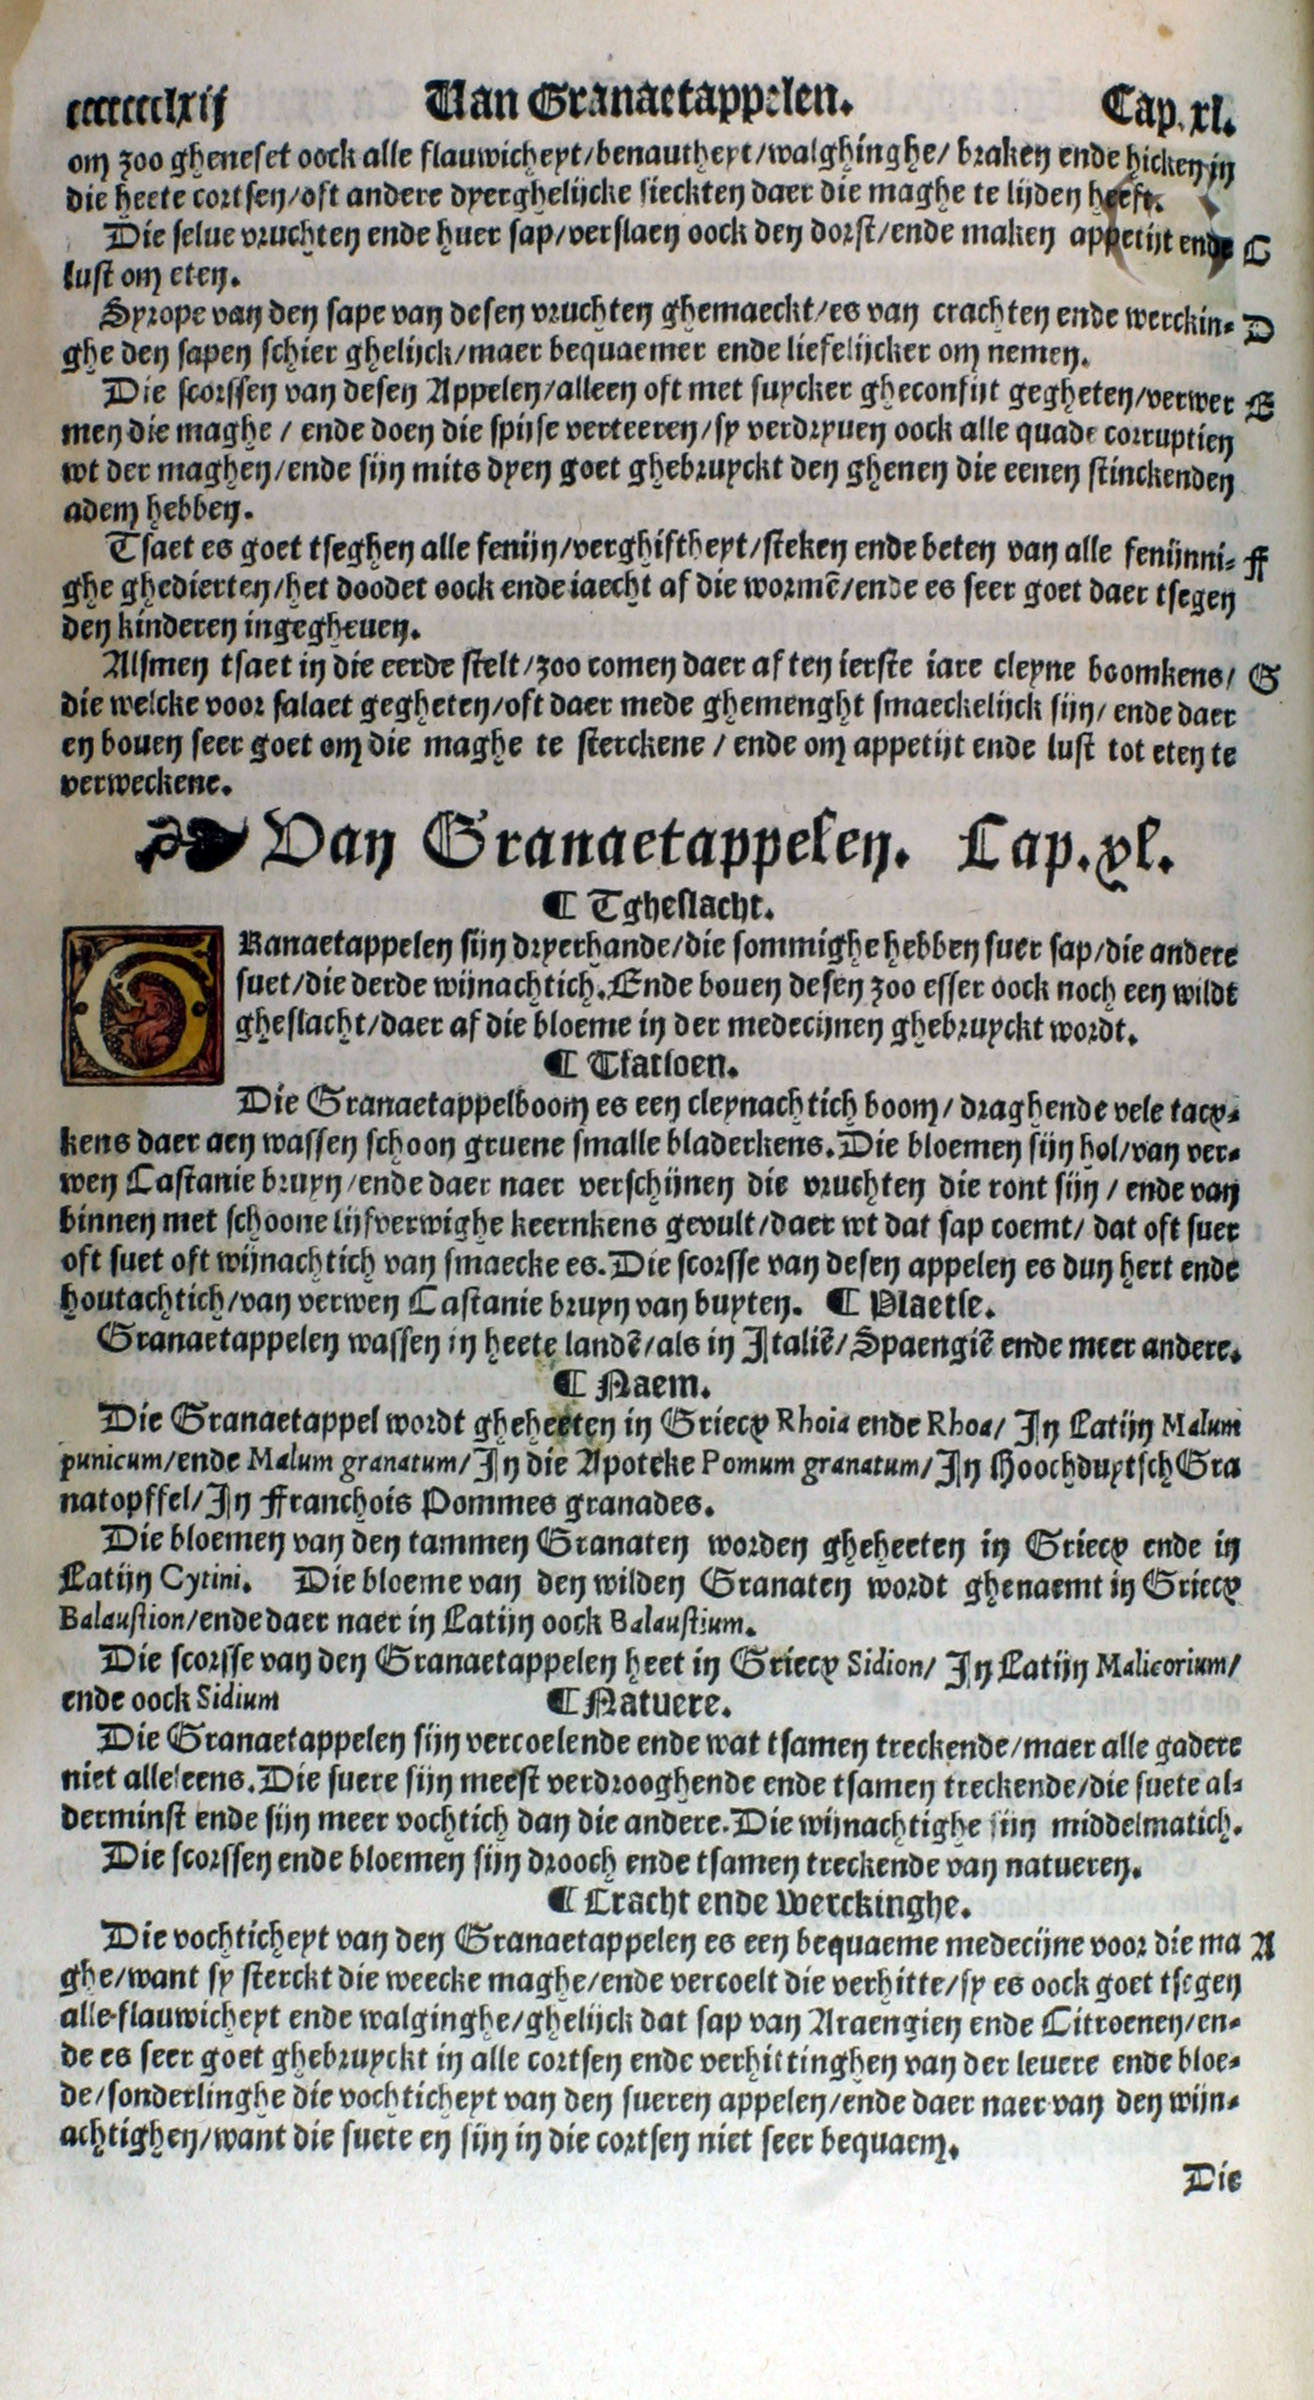 ccccccclxij Van Granaetappelen. Cap. xl.
om zoo gheneset oock alle flauwicheyt/benautheyt/walghinghe/ braken ende hicken in
die heete cortsen/oft andere dyerghelijcke sieckten daer die maghe te lijden heeft.
Die selue vruchten ende huer sap/verslaen oock den dorst/ende maken appetijt ende C
lust om eten.
Syrope van den sape van desen vruchten ghemaeckt/es van crachten ende werckin- D
ghe den sapen schier ghelijck/maer bequaemer ende liefelijcker om nemen.
Die scorssen van desen Appelen/alleen oft met suycker gheconfijt gegheten/verwer E
men die maghe / ende doen die spijse verteeren/sy verdryuen oock alle quade corruptien
wt der maghen/ende sijn mits dyen goet ghebruyckt den ghenen die eenen stinckenden
adem hebben.
Tsaet es goet tseghen alle fenijn/verghiftheyt/steken ende beten van alle fenijnni- F
ghe ghedierten/het doodet oock ende iaecht af die wormē/ende es seer goet daer tsegen
den kinderen ingegheuen.
Alsmen tsaet in die eerde stelt/zoo comen daer af ten ierste iare cleyne boomkens/ G
die welcke voor salaet gegheten/oft daer mede ghemenght smaeckelijck sijn/ ende daer
en bouen seer goet om die maghe te sterckene / ende om appetijt ende lust tot eten te
verweckene.
Van Granaetappelen. Cap. xl.
¶ Tgheslacht.
GRanaetappelen sijn dryerhande/die sommighe hebben suer sap/die andere
suet/die derde wijnachtich. Ende bouen desen zoo esser oock noch een wildt
gheslacht/daer af die bloeme in der medecijnen ghebruyckt wordt.
¶ Tfatsoen.
Die Granaetappelboom es een cleynachtich boom/ draghende vele tacx-
kens daer aen wassen schoon gruene smalle bladerkens. Die bloemen sijn hol/van ver-
wen Castanie bruyn/ende daer naer verschijnen die vruchten die ront sijn / ende van
binnen met schoone lijfverwighe keernkens gevult/daer wt dat sap coemt/ dat oft suer
oft suet oft wijnachtich van smaecke es. Die scorsse van desen appelen es dun hert ende
houtachtich/van verwen Castanie bruyn van buyten. ¶ Plaetse.
Granaetappelen wassen in heete landē/als in Italiē/Spaengiē ende meer andere.
¶ Naem.
Die Granaetappel wordt gheheeten in Griecx Rhoia ende Rhoa/ In Latijn Malum
punicum/ende Malum granatum/In die Apoteke Pomum granatum/In Hoochduytsch Gra
natopffel/In Franchois Pommes granades.
Die bloemen van den tammen Granaten worden gheheeten in Griecx ende in
Latijn Cytini. Die bloeme van den wilden Granaten wordt ghenaemt in Griecx
Balaustion/ende daer naer in Latijn oock Balaustium.
Die scorsse van den Granaetappelen heet in Griecx Sidion/ In Latijn Malicorium/
ende oock Sidium ¶ Natuere.
Die Granaetappelen sijn vercoelende ende wat tsamen treckende/maer alle gadere
niet alleleens. Die suere sijn meest verdrooghende ende tsamen treckende/die suete al-
derminst ende sijn meer vochtich dan die andere. Die wijnachtighe sijn middelmatich.
Die scorssen ende bloemen sijn drooch ende tsamen treckende van natueren.
¶ Cracht ende Werckinghe.
Die vochticheyt van den Granaetappelen es een bequaeme medecijne voor die ma A
ghe/want sy sterckt die weecke maghe/ende vercoelt die verhitte/sy es oock goet tsegen
alle flauwicheyt ende walginghe/ghelijck dat sap van Araengien ende Citroenen/en-
de es seer goet ghebruyckt in alle cortsen ende verhittinghen van der leuere ende bloe-
de/sonderlinghe die vochticheyt van den sueren appelen/ende daer naer van den wijn-
achtighen/want die suete en sijn in die cortsen niet seer bequaem.
Die